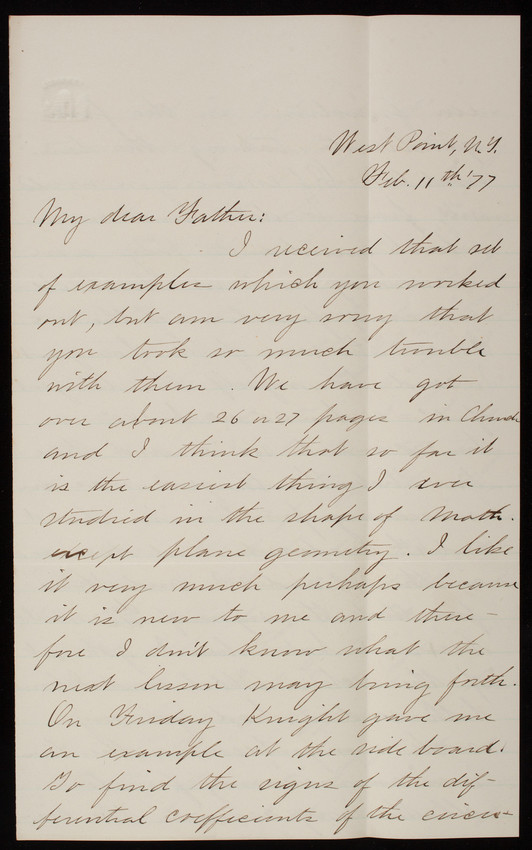 West Point, N.Y.
Feb. 11th '77
My dear Father:
I received that set
of examples which you worked
out, but am very sorry that
you took so much trouble
with them. We have got
over about 26 or 27 pages in Church
and I think that so far it
is the easiest thing I ever
studied in the shape of Math.
except plane geometry. I like
it very much perhaps because
it is new to me and there-
fore I don't know what the
next lesson may bring forth.
On Friday Knight gave me
an example at the side board.
To find the signs of the dif-
ferential coefficients of the circu-